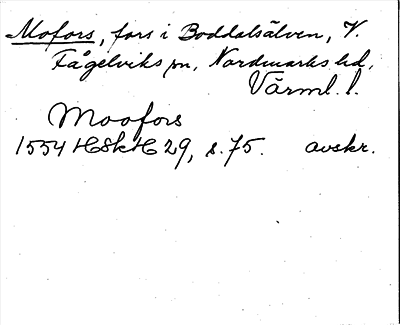 Mofors, fors i Boddalsälven, V.
Fågelviks sn, Nordmarks hd,
Värml. l.
Moofors
1554 HSkH 29, s. 75. avskr.